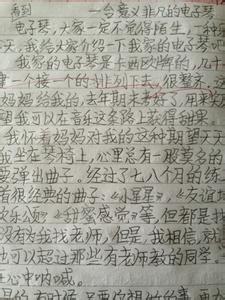 看到
一台意义非凡的电子琴
电子琴,大家一定不觉得陌生,一种乐
天,我给大家介绍一下我家的电子琴吧
我家的电子琴是卡西欧牌的,几十
一个接一个的排列下去,很整齐。这
妈妈给我的,去年期末考好了,用来奖
望我可以在音乐这条路上获得甜果
我怀着妈妈对我的这种期望天天
我坐在琴椅上,心里总有一股莫名的
要弹出曲子。经过了七八个月的练
有很经典的曲子:《小星星》,《友谊地
欢乐颂》《甜蜜感觉》等,但都是找
没有为我找老师,但是,我相信,就
也可以超过那些有老师教的同学。
在心中呐喊。